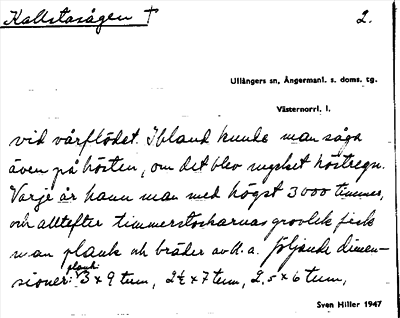 Kallstasågen †
2.
Ullångers sn, Ångermanl. s. doms. tg.
Västernorrl. l.
vid vårflödet. Ibland kunde man såga
även på hösten, om det blev mycket höstregn.
Varje år hann man med högst 3000 timmer,
och alltefter timmerstockarnas grovlek fick
man plank och bräder av bl. a. följande dimen-
sioner: plank: 3 x 9 tum, 2½ x 7 tum, 2,5 x 6 tum,
Sven Hiller 1947